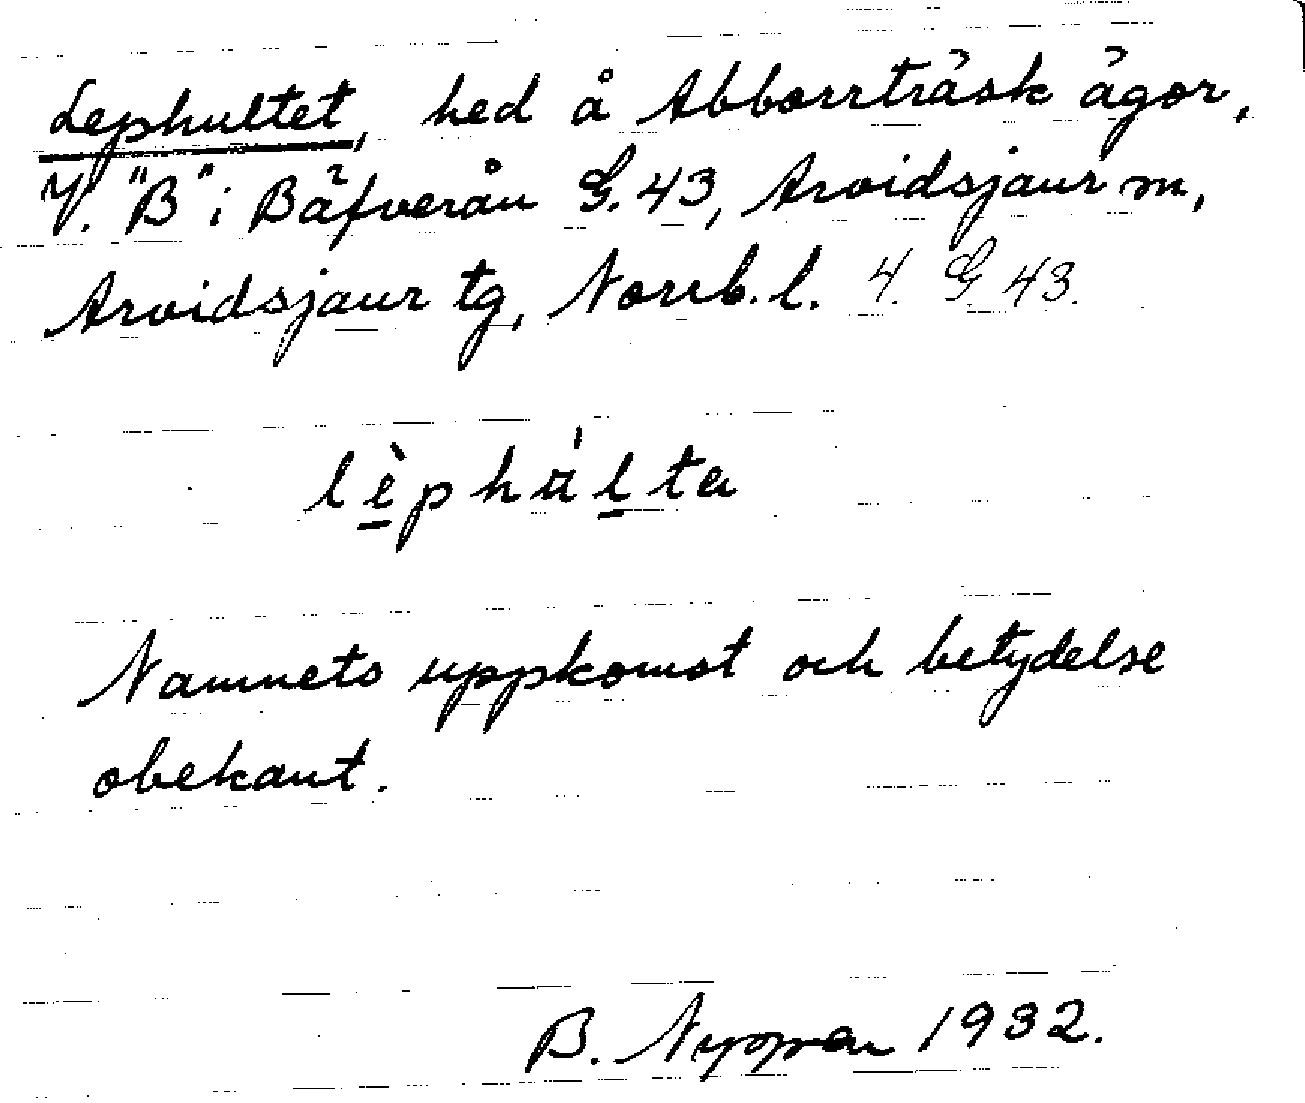 Lephultet, hed å Abborrträsk ägor,
V. "B" i Bäfverån G. 43, Arvidsjaur m,
Arvidsjaur tg, Norrb. l. 4. G 43.
lèphúlta
Namnets uppkomst och betydelse
obekant.
B. 1932.